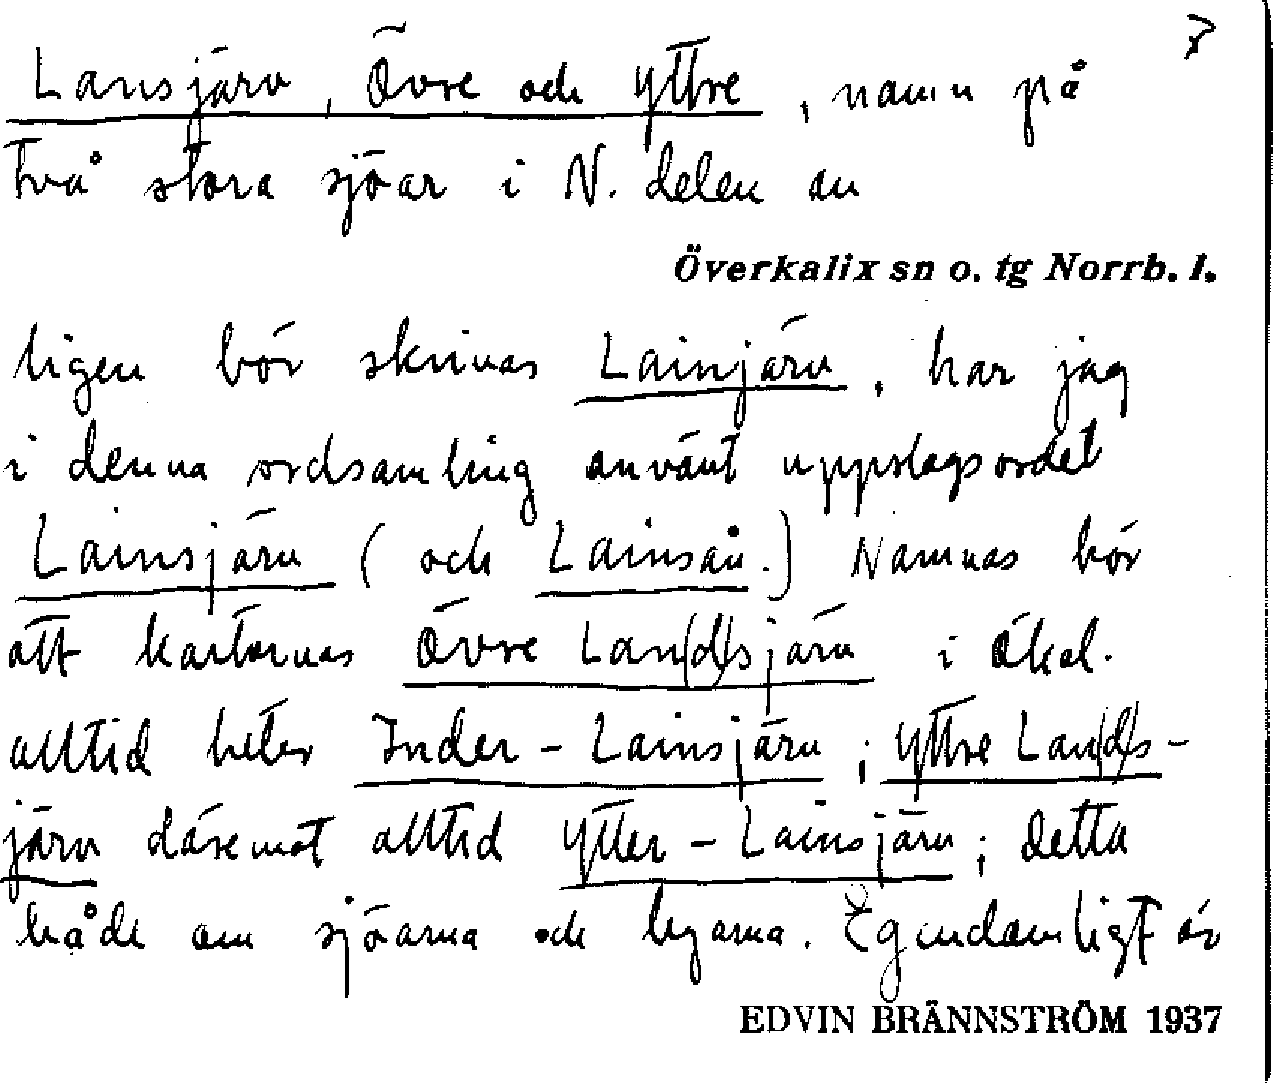 Lansjärv, Övre och Yttre, namn på
två stora sjöar i N. delen av
Överkalix sn o. tg Norrb. l.
ligen bör skrivas Lainjärv, har jag
i denna ordsamling använt uppslagsordet
Lainsjärv (och Lainsån.) Nämnas bör
att kartornas Övre Lan(d)sjärv i Ökal.
alltid heter Inder-Lainsjärv; Yttre Lan(d)s-
järv däremot alltid Ytter-Lainsjärv; detta
både om sjöarna och byarna. Egendomligt är
EDVIN BRÄNNSTRÖM 1937